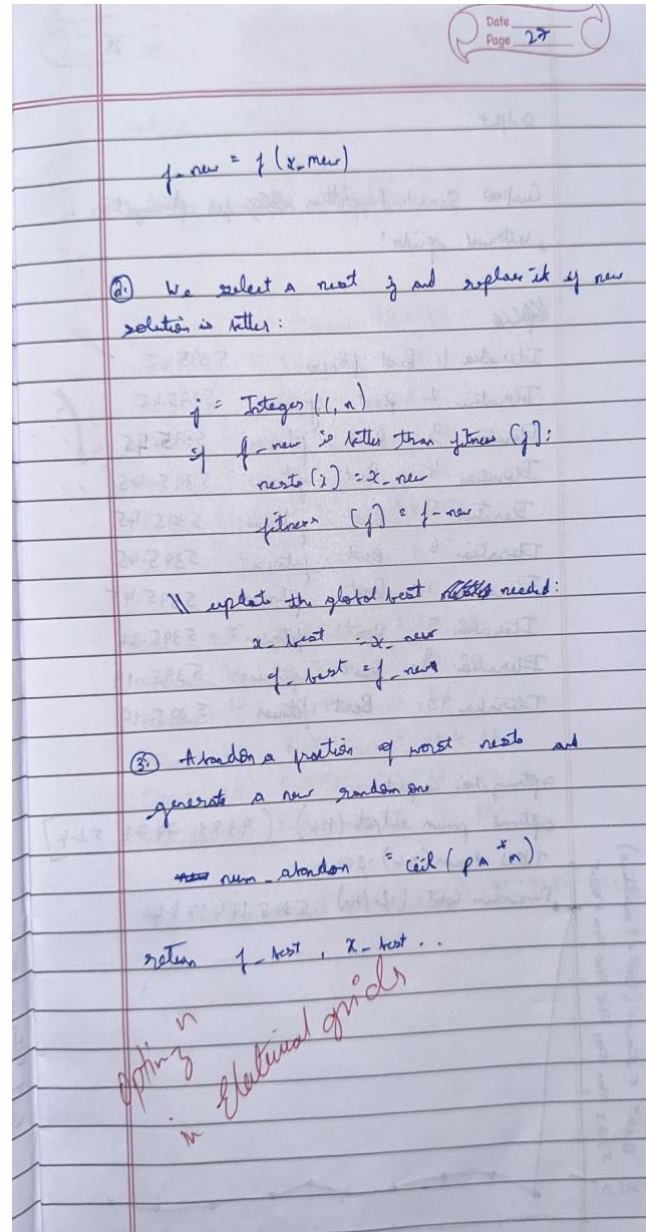 Date
Page 27
f_new = f (x_new)
2. We select a nest j and replace it if new
solution is better:
j = Integer (1, n)
if f_new is better than fitness [j]:
nests (j) = x_new
fitness [j] = f_new
\\ update the global best needed:
x_best = x_new
f_best = f_new
3. Abandon a fraction of worst nests and
generate a new random one
num_abandon = ceil (pA * n)
return f_best, x_best ..
Optimz n
in Electrical grids